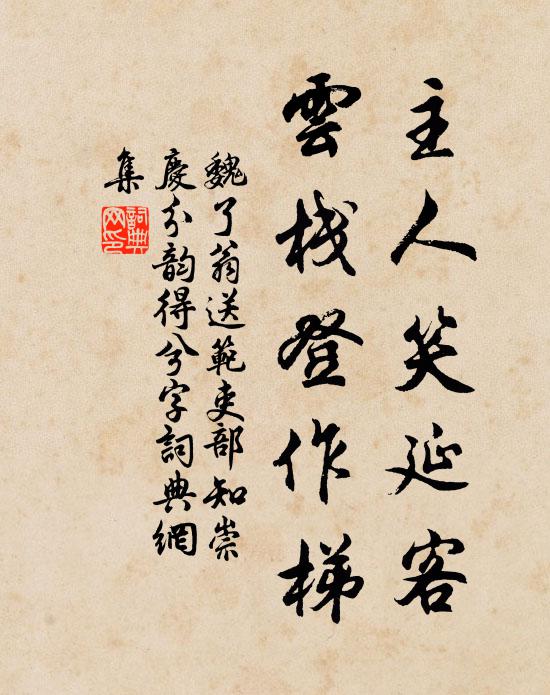 主人笑延客
雲棧登作梯
魏了翁送範吏部知崇
慶分韵得八兮字詞典網
集
詞典
網印